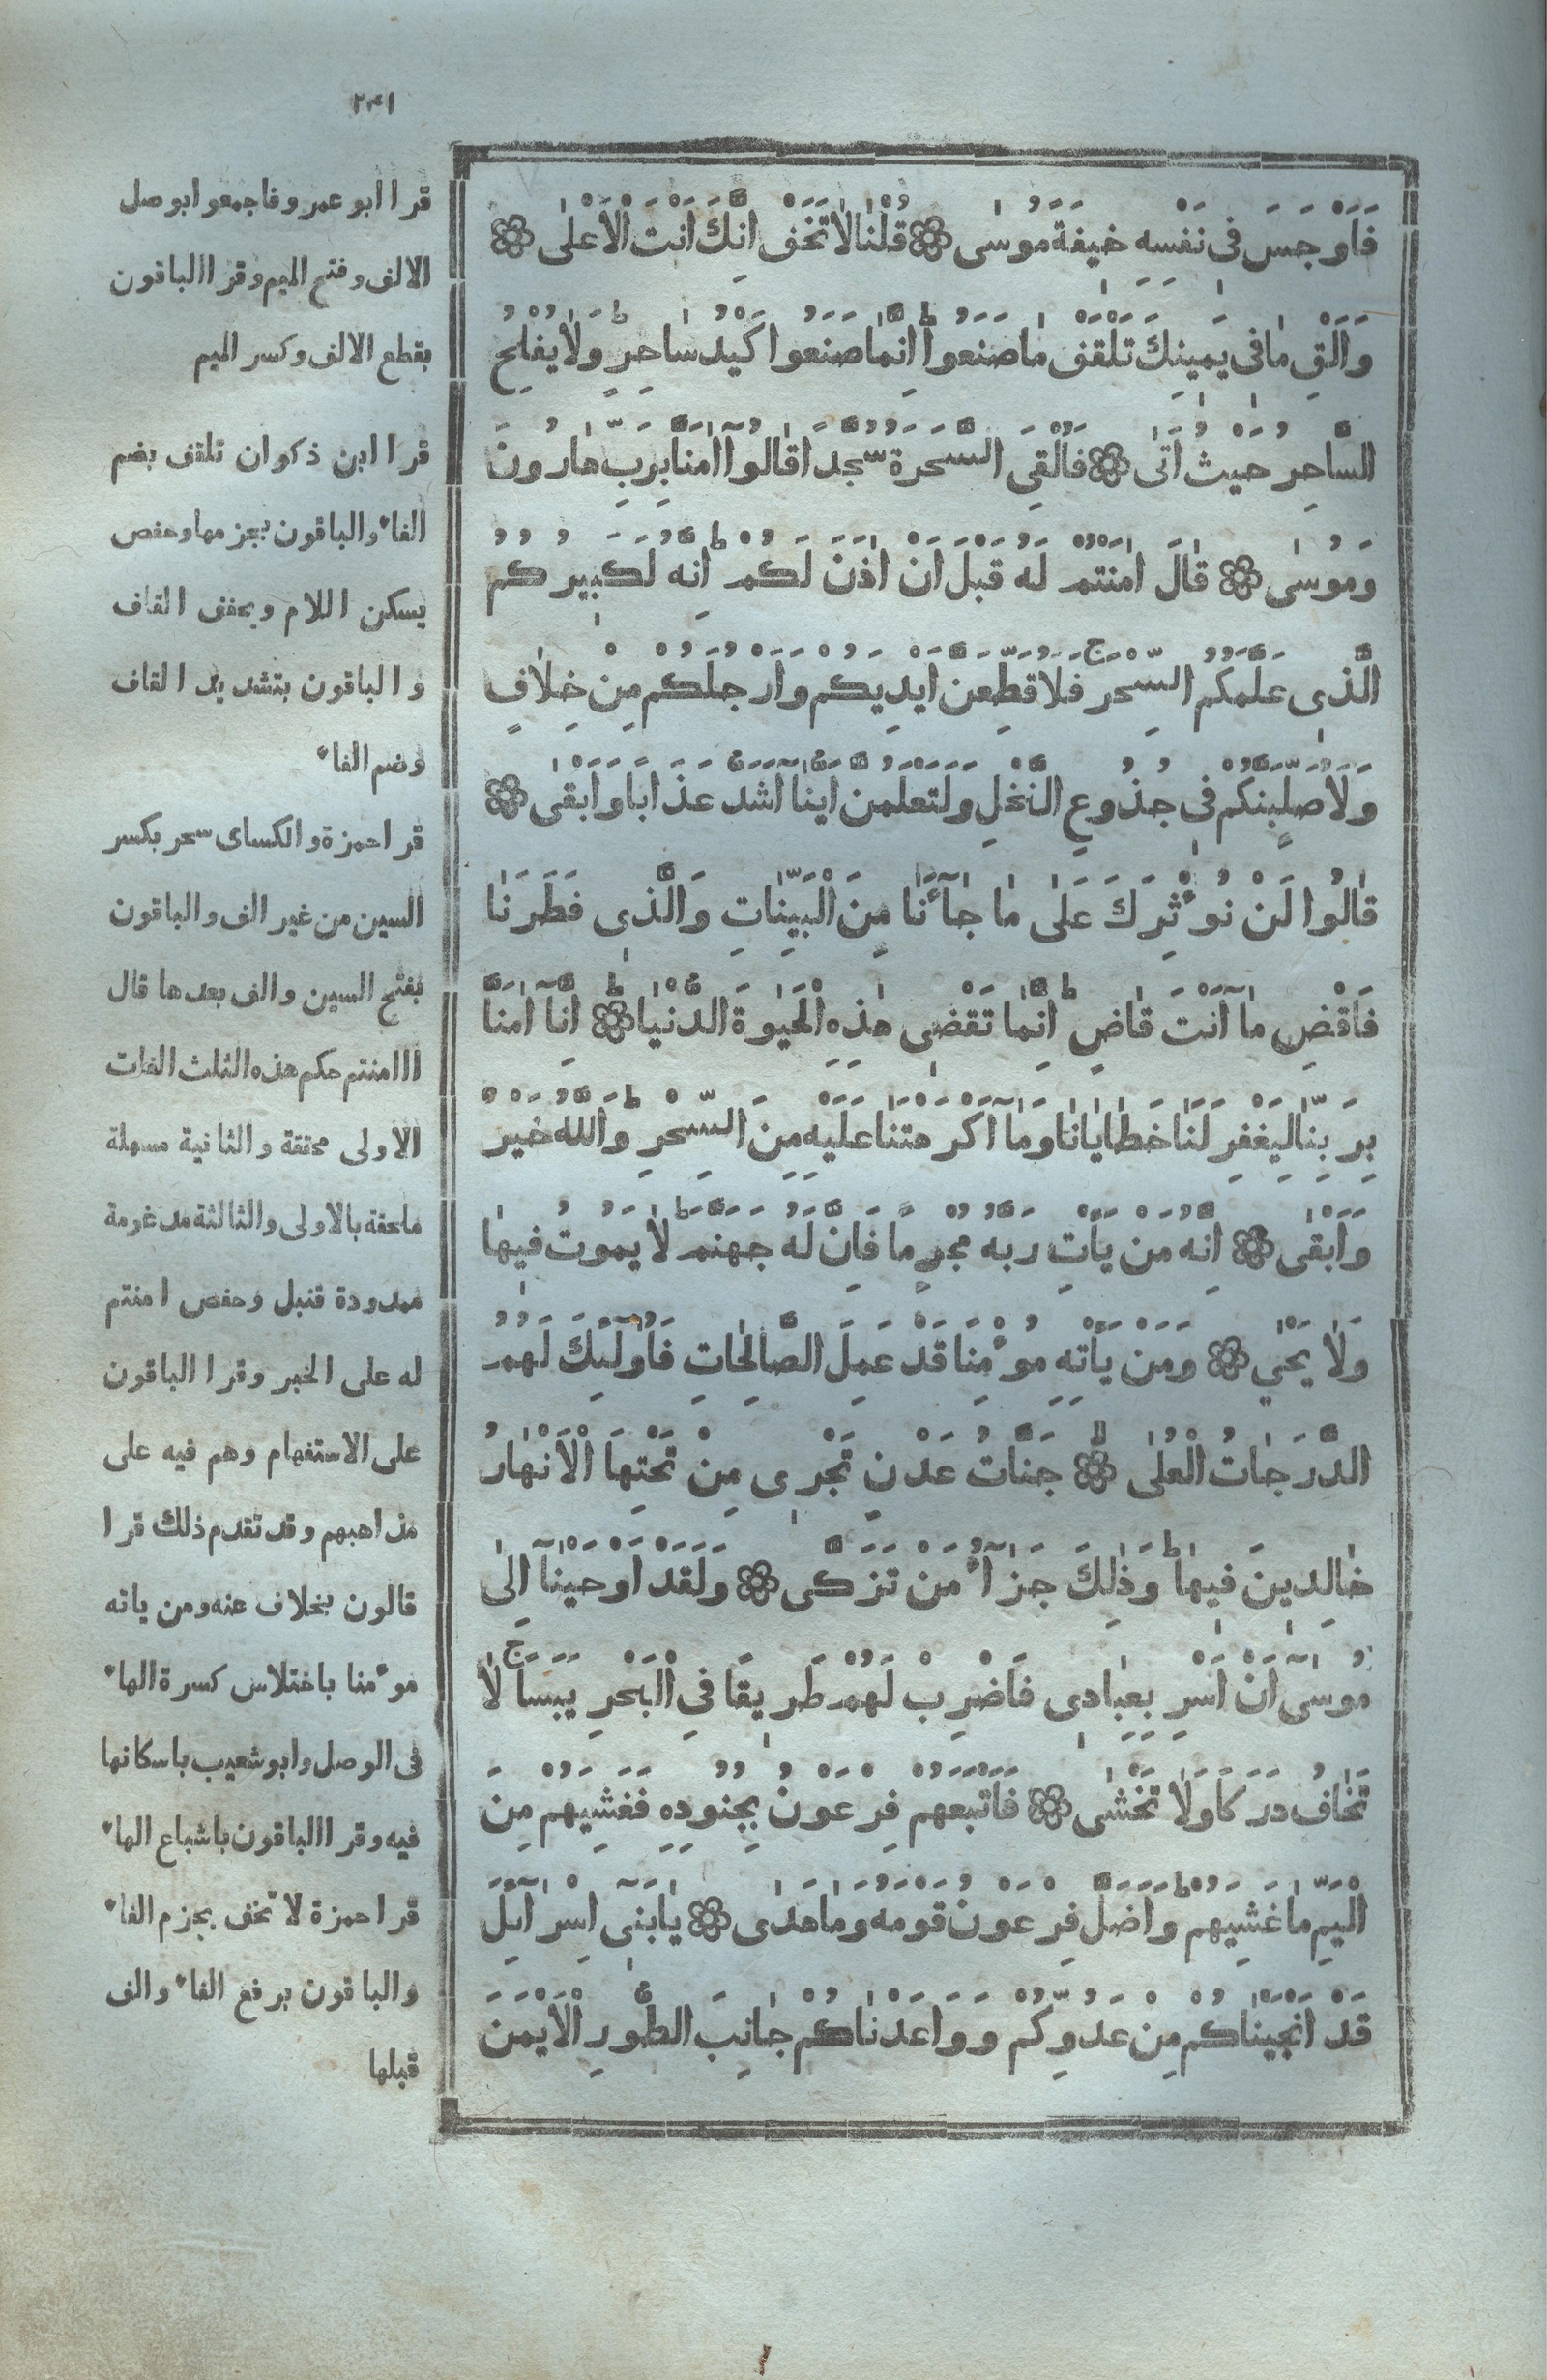 ٢٤١
فَاَوْجَسَ فى نَفْسِه خيفَةً مُوسٰى ۞ قُلْنٰا لاٰ تَخَفْ اِنَّكَ اَنْتَ الْاَعْلٰى ۞
وَاَلْقِ مٰا فى يَمينِكَ تَلْقَفْ مٰا صَنَعُوا ط اِنَّمٰا صَنَعُوا كَيْدُ سٰاحِرٍ ط وَلاٰ يُفْلِحُ
السّٰاحِرُ حَيْثُ اَتٰى ۞ فَاُلْقِىَ السَّحَرَةُ سُجَّدًا قٰالُوٓا اٰمَنّٰا بِرَبِّ هٰارُونَ
وَمُوسٰى ۞ قٰالَ اٰمَنْتُمْ لَهُ قَبْلَ اَنْ اٰذَنَ لَكُمْ ط اِنَّهُ لَكَبيرُكُمُ
الَّذى عَلَّمَكُمُ السِّحْرَ ج فَلَاُقَطِّعَنَّ اَيْدِيَكُمْ وَاَرْجُلَكُمْ مِنْ خِلاٰفٍ
وَلَاُصَلِّبَنَّكُمْ فى جُذُوعِ النَّخْلِ وَلَتَعْلَمُنَّ اَيُّنٰٓا اَشَدُّ عَذَابًا وَاَبْقٰى ۞
قٰالُوا لَنْ نُوءْثِرَكَ عَلٰى مٰا جٰٓاءَنٰا مِنَ الْبَيِّنٰاتِ وَالَّذى فَطَرَنٰا
فَاقْضِ مٰٓا اَنْتَ قٰاضٍ ط اِنَّمٰا تَقْضى هٰذِهِ الْحَيٰوةَ الدُّنْيٰا ط ۞ اِنّٰٓا اٰمَنّٰا
بِرَبِّنٰا لِيَغْفِرَ لَنٰا خَطٰايٰانٰا وَمٰٓا اَكْرَهْتَنٰا عَلَيْهِ مِنَ السِّحْرِ ط وَاللّٰهُ خَيْرٌ
وَاَبْقٰى ۞ اِنَّهُ مَنْ يَأْتِ رَبَّهُ مُجْرِمًا فَاِنَّ لَهُ جَهَنَّمَ ط لاٰ يَمُوتُ فيهٰا
وَلاٰ يَحْيٰي ۞ وَمَنْ يَأْتِهِ مُوءْمِنًا قَدْ عَمِلَ الصّٰالِحٰاتِ فَاُولٰٓئِكَ لَهُمُ
الدَّرَجٰاتُ الْعُلٰى ۞ جَنّٰاتُ عَدْنٍ تَجْرى مِنْ تَحْتِهَا الْاَنْهٰارُ
خٰالِدينَ فيهٰا ط وَذٰلِكَ جَزٰٓاءُ مَنْ تَزَكّٰى ۞ وَلَقَدْ اَوْحَيْنٰٓا اِلٰى
مُوسٰٓى اَنْ اَسْرِ بِعِبٰادى فَاضْرِبْ لَهُمْ طَريقًا فِى الْبَحْرِ يَبَسًا ج لاٰ
تَخٰافُ دَرَكًا وَلاٰ تَخْشٰى ۞ فَاَتْبَعَهُمْ فِرْعَوْنُ بِجُنُودِهِ فَغَشِيَهُمْ مِنَ
الْيَمِّ مٰا غَشِيَهُمْ ط وَاَضَلَّ فِرْعَوْنُ قَوْمَهُ وَمٰا هَدٰى ۞ يٰا بَنىٓ اِسْرٰٓاىِٔلَ
قَدْ اَنْجَيْنٰاكُمْ مِنْ عَدُوِّكُمْ وَوَاعَدْنٰاكُمْ جٰانِبَ الطُّورِ الْاَيْمَنَ
قرا ابو عمرو فاجمعوا بوصل
الالف وفتح الميم وقرا الباقون
بقطع الالف وكسر الميم
قرا ابن ذكوان تلقف بضم
الفاء والباقون بجزمها وحفص
يسكن اللام ويخفف القاف
والباقون بتشديد القاف
وضم الفاء
قرا حمزة والكساى سحر بكسر
السين من غير الف والباقون
بفتح السين والف بعدها قال
ااامنتم حكم هذه الثلث الفات
الاولى محققة والثانية مسهلة
ملحقة بالاولى والثالثة مدغومة
ممدودة قنبل وحفص امنتم
له على الخبر وقرا الباقون
على الاستفهام وهم فيه على
مذاهبهم وقد تقدم ذلك قرا
قالون بخلاف عنه ومن ياته
موءمنا باختلاس كسرة الهاء
فى الوصل وابو شعيب باسكانها
فيه وقرا الباقون باشباع الهاء
قرا حمزة لا تخف بجزم الفاء
والباقون برفع الفاء والف
قبلها